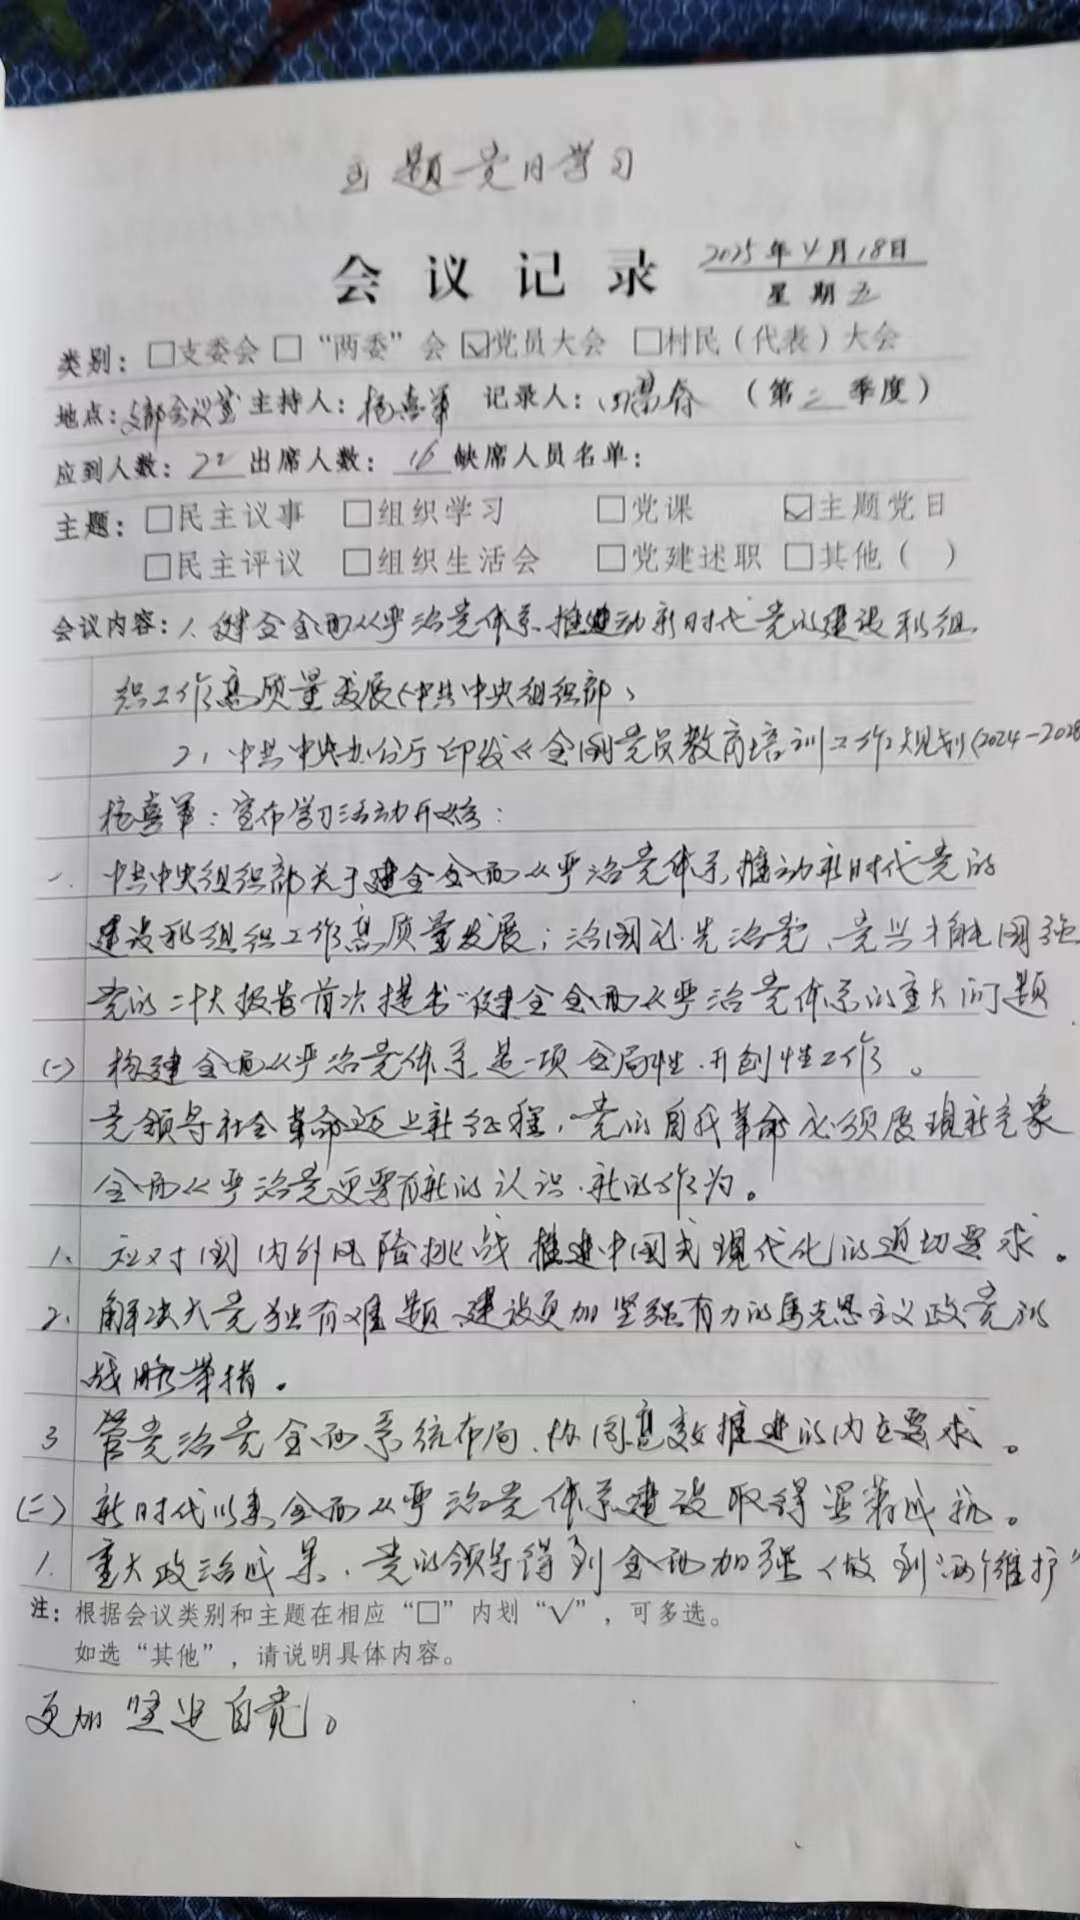 主题党日学习
会议记录 2025年4月18日
星期五
类别：□支委会 □“两委”会 ☑党员大会 □村民（代表）大会
地点：支部会议室 主持人：杨喜军 记录人： （第二季度）
应到人数：22 出席人数：16 缺席人员名单：
主题：□民主议事 □组织学习 □党课 ☑主题党日
□民主评议 □组织生活会 □党建述职 □其他（ ）
会议内容：1、健全全面从严治党体系、推进动新时代党的建设和组
织工作高质量发展（中共中央组织部）
2、中共中央办公厅印发《全国党员教育培训工作规划(2024-2028
杨喜军：宣布学习活动开始：
一、中共中央组织部关于建全全面从严治党体系，推动新时代党的
建设和组织工作高质量发展；治国必先治党、党兴才能国强
党的二十大报告首次提出“健全全面从严治党体系的重大问题
(一) 构建全面从严治党体系是一项全局性.开创性工作。
党领导社会革命迈上新征程，党的自我革命必须展现新气象
全面从严治党更要有新的认识.新的作为。
1、应对国内外风险挑战推进中国式现代化的迫切要求。
2、解决大党独有难题、建设更加坚强有力的马克思主义政党的
战略举措。
3 管党治党全面系统布局、协同高效推进的内在要求。
(二) 新时代以来全面从严治党体系建设取得显著成就。
1. 重大政治成果、党的领导得到全面加强（做到“两个维护”
注：根据会议类别和主题在相应“□”内划“√”，可多选。
如选“其他”，请说明具体内容。
更加坚定自觉）。